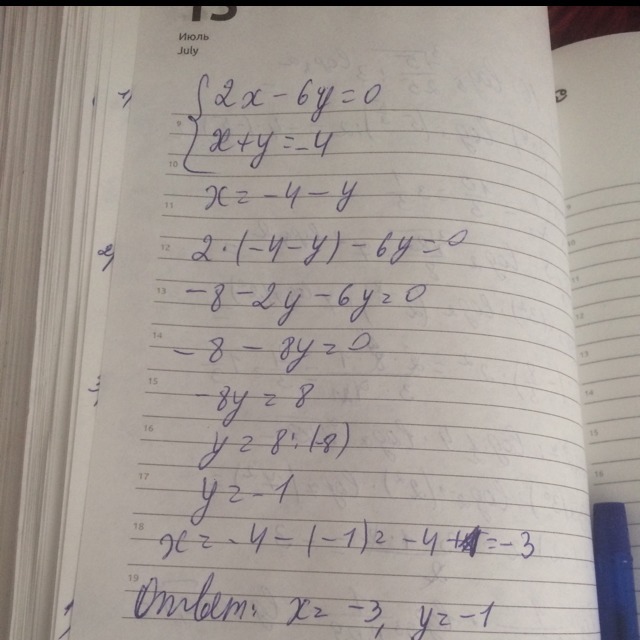 13
Июль
July
1) { 2x - 6y = 0
9 x + y = -4
10
11 x = -4 - y
2) 12 2 · (-4 - y) - 6y = 0
13 -8 - 2y - 6y = 0
14 -8 - 8y = 0
15 -8y = 8
16 y = 8 : (-8)
17 y = -1
18 x = -4 - (-1) = -4 + 1 = -3
19 Ответ: x = -3, y = -1